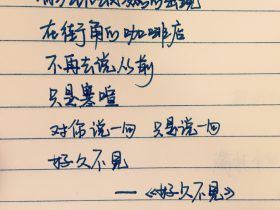 在街角的咖啡店
不再去说从前
只是寒喧
对你说一句 只是说一句
好久不见
——《好久不见》